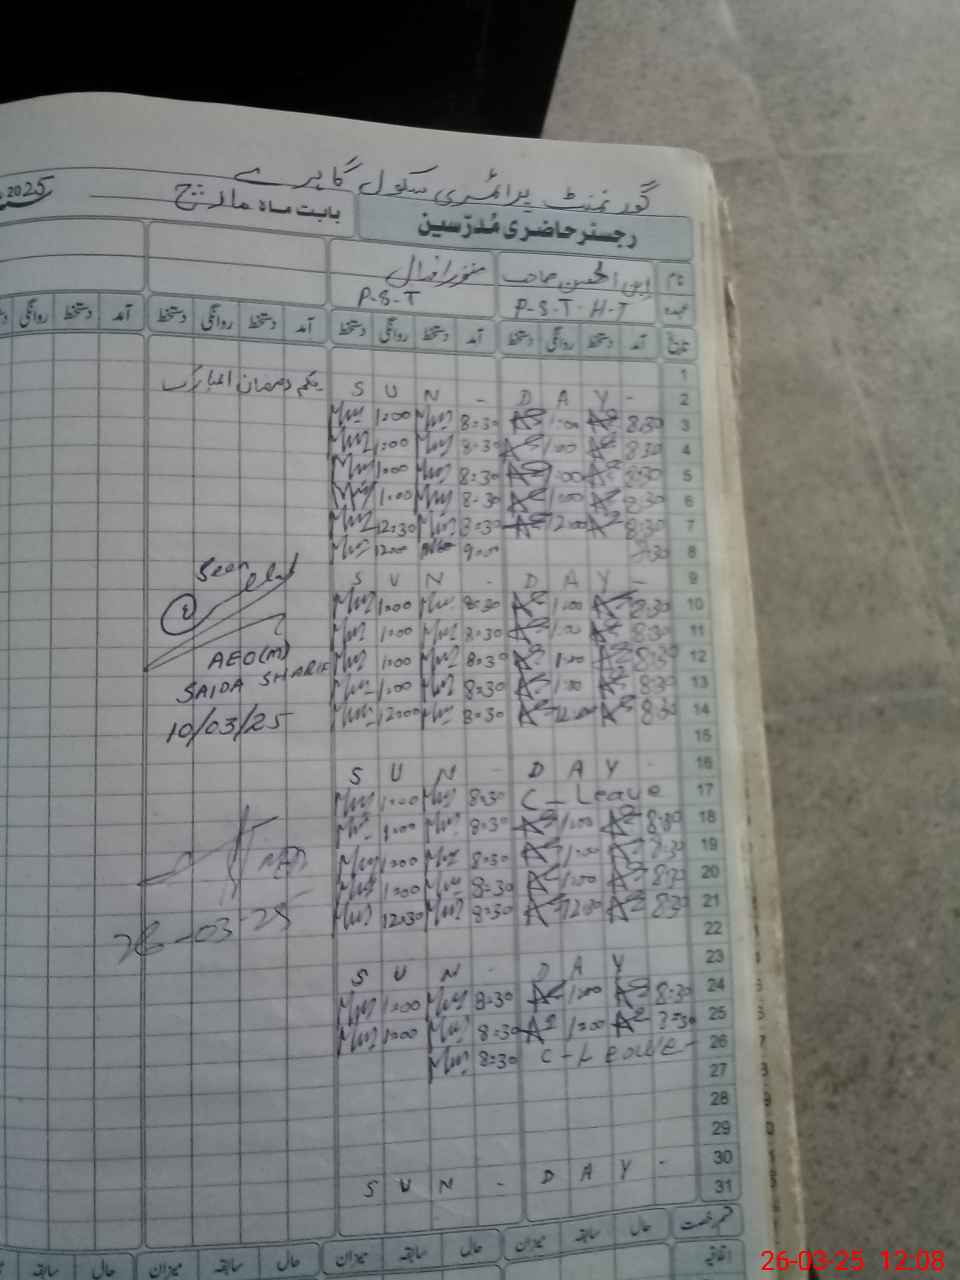 گورنمنٹ پرائمری سکول گاہرے
رجسٹر حاضری مُدرّسین بابت ماہ مارچ 2025
نام ابن الحسین صاحب منور اقبال
عہدہ P-S-T-H-T P-S-T
تاریخ آمد دستخط روانگی دستخط آمد دستخط روانگی دستخط آمد دستخط روانگی دستخط آمد دستخط روانگی
1
2 S U N - D A Y - یکم رمضان المبارک
3 8:30 1:00 8:30 1:00
4 8:30 1:00 8:30 1:00
5 8:30 1:00 8:30 1:00
6 8:30 1:00 8:30 1:00
7 8:30 12:00 8:30 12:30
8 8:30 9:00 12:00
9 S U N - D A Y -
10 8:30 1:00 8:30 1:00
11 8:30 1:00 8:30 1:00
12 8:30 1:00 8:30 1:00
13 8:30 1:00 8:30 1:00
14 8:30 12:00 8:30 12:00
15
16 S U N - D A Y -
17 C - Leave 8:30 1:00
18 8:30 1:00 8:30 1:00
19 8:30 1:00 8:30 1:00
20 8:30 1:00 8:30 1:00
21 8:30 12:00 8:30 12:30
22
23 S U N - D A Y
24 8:30 1:00 8:30 1:00
25 8:30 1:00 8:30 1:00
26 C - Leave - 8:30
27
28
29
30 S U N - D A Y -
31
Seen
AEO(M)
SAIDA SHARIF
10/03/25
26-03-25
قسم رخصت حال سابقہ میزان حال سابقہ میزان حال سابقہ میزان حال سابقہ
اتفاقیہ
26-03-25 12:08